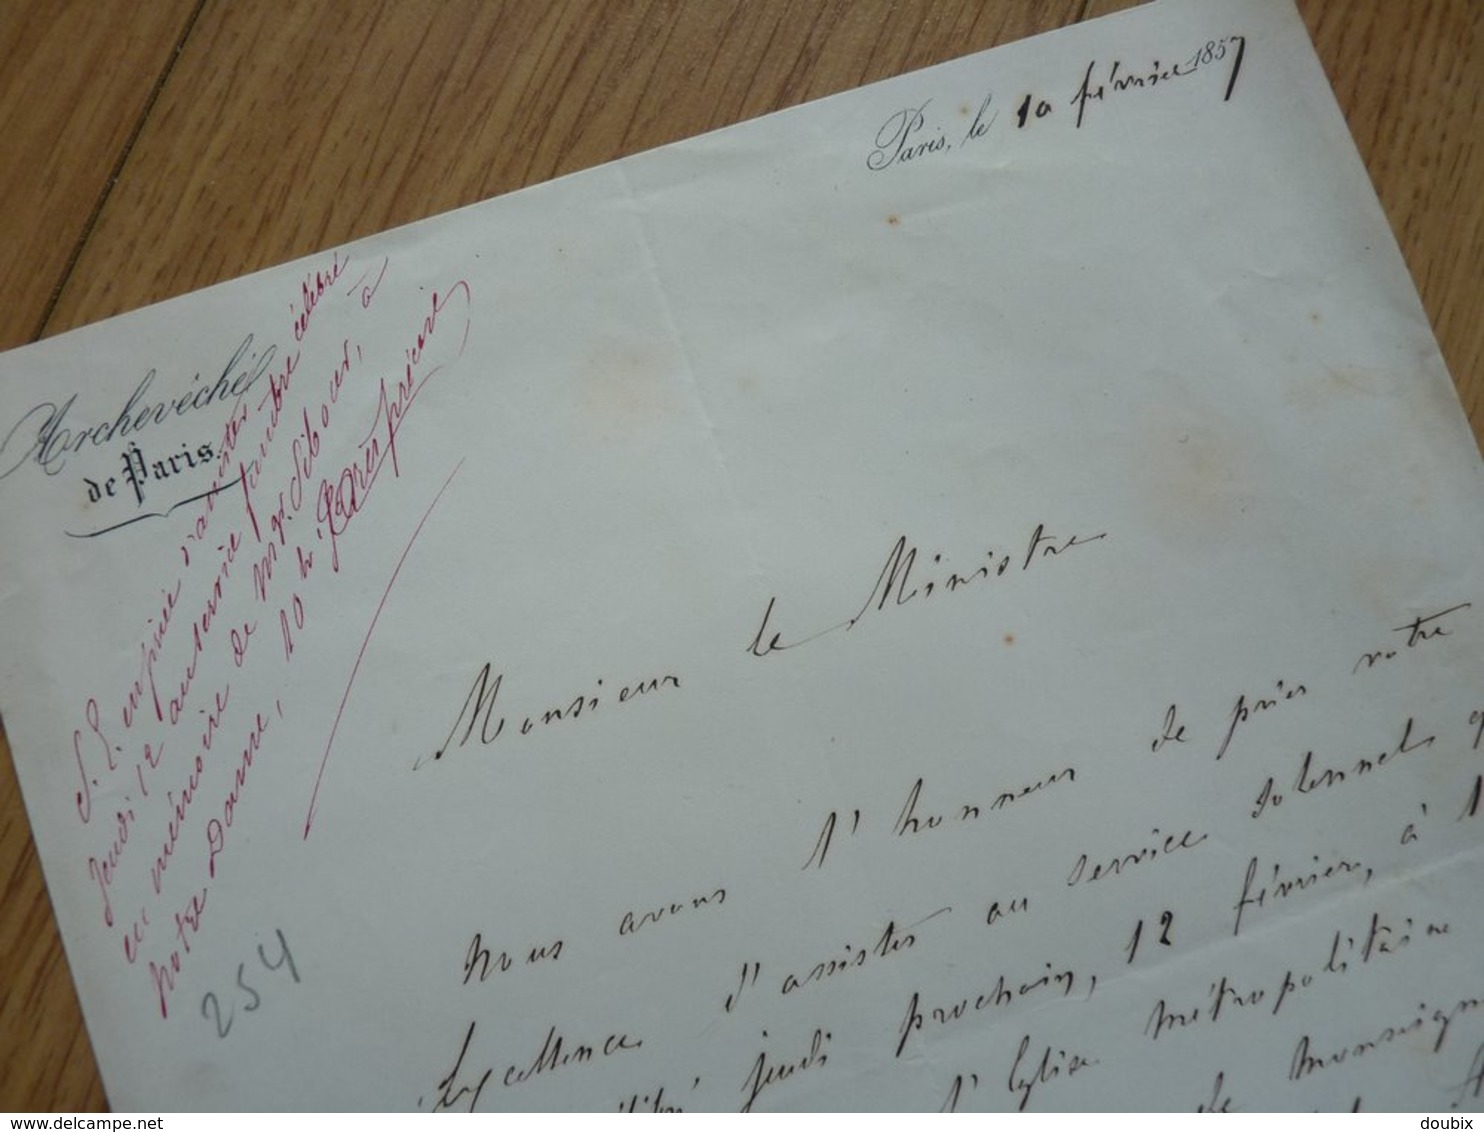 Paris, le 10 février 1857
Archevêché
de Paris.
S. E. est priée d'assister
jeudi 12 au service funèbre célébré
en mémoire de Mgr. Sibour, à
Notre Dame, 10 h.
254
Monsieur le Ministre
Nous avons l'honneur de prier votre
Excellence d'assister au service solennel
célébré jeudi prochain, 12 février, à 1
l'Eglise métropolitaine
de Monseign
delcampe.net
doubix